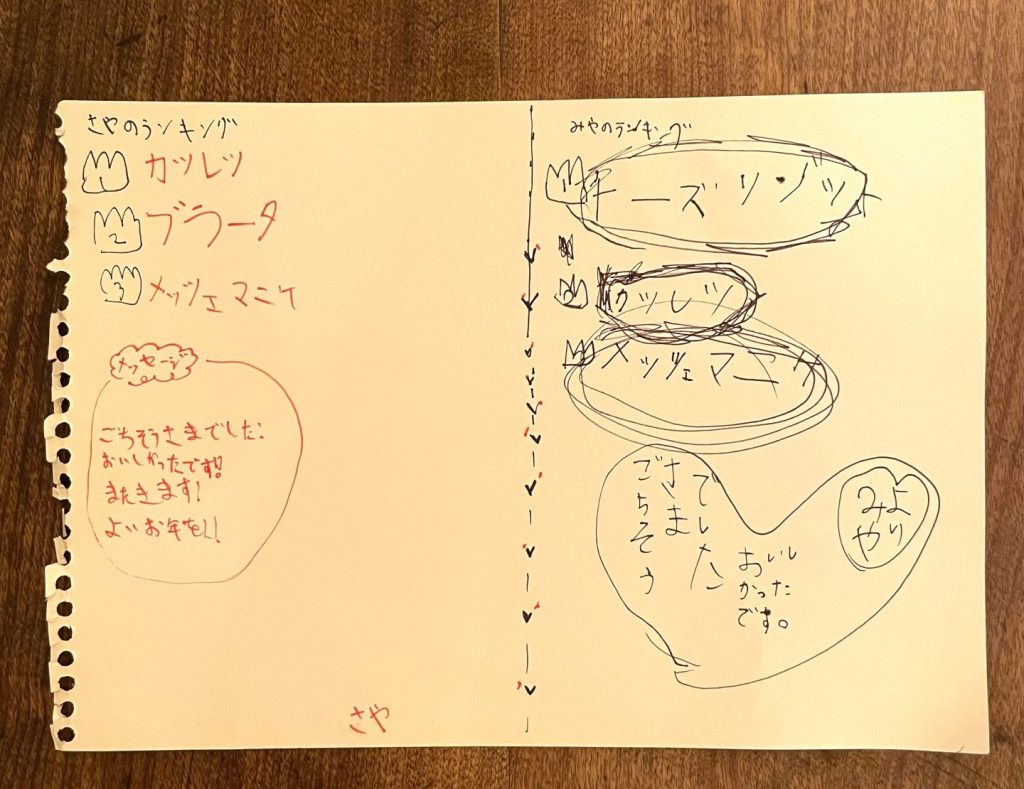 さやのランキング
1 カツレツ
2 ブラータ
3 メッツェマニケ
メッセージ
ごちそうさまでした!
おいしかったです!!
またきます!
よいお年を!!
さや
みやのランキング
1 チーズリゾッ
2 カツレツ
3 メッツェマニケ
ごちそう
さま
でした
おいし
かった
です。
みや
より